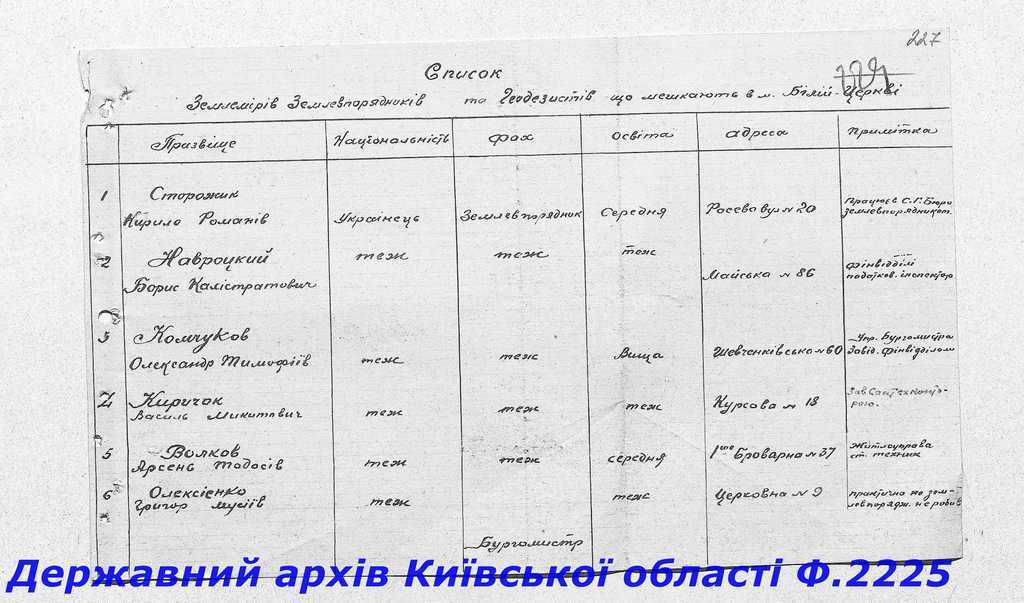 227
Список
Землемірів Землевпорядників та Геодезистів що мешкають в м. Білій-Церкві
Призвище Національність Фах Освіта Адреса Примітка
1 Сторожик
Кирило Романів Українець Землевпорядник Середня Росева вул № 20 Працює в С.Г. Бюро
землевпорядником.
2 Навроцкий теж теж теж
Борис Калістратович Майська № 86 Фінвідділі
податков. інспектор
3 Комчуков
Олександр Тимофіїв теж теж Вища Шевченківська № 60 Упр. Бургомистра
Завід. Фінвідділом
4 Киричок
Василь Микитович теж теж теж Курсова № 18
5 Волков
Арсень Тодосів теж теж середня 1ше Броварна № 37 Житлоуправа
ст. технік
6 Олексієнко
Григор Мусіїв теж теж Церковна № 9 практично по зем-
левпорядж. не робив
Бургомистр
Державний архів Київської області Ф.2225